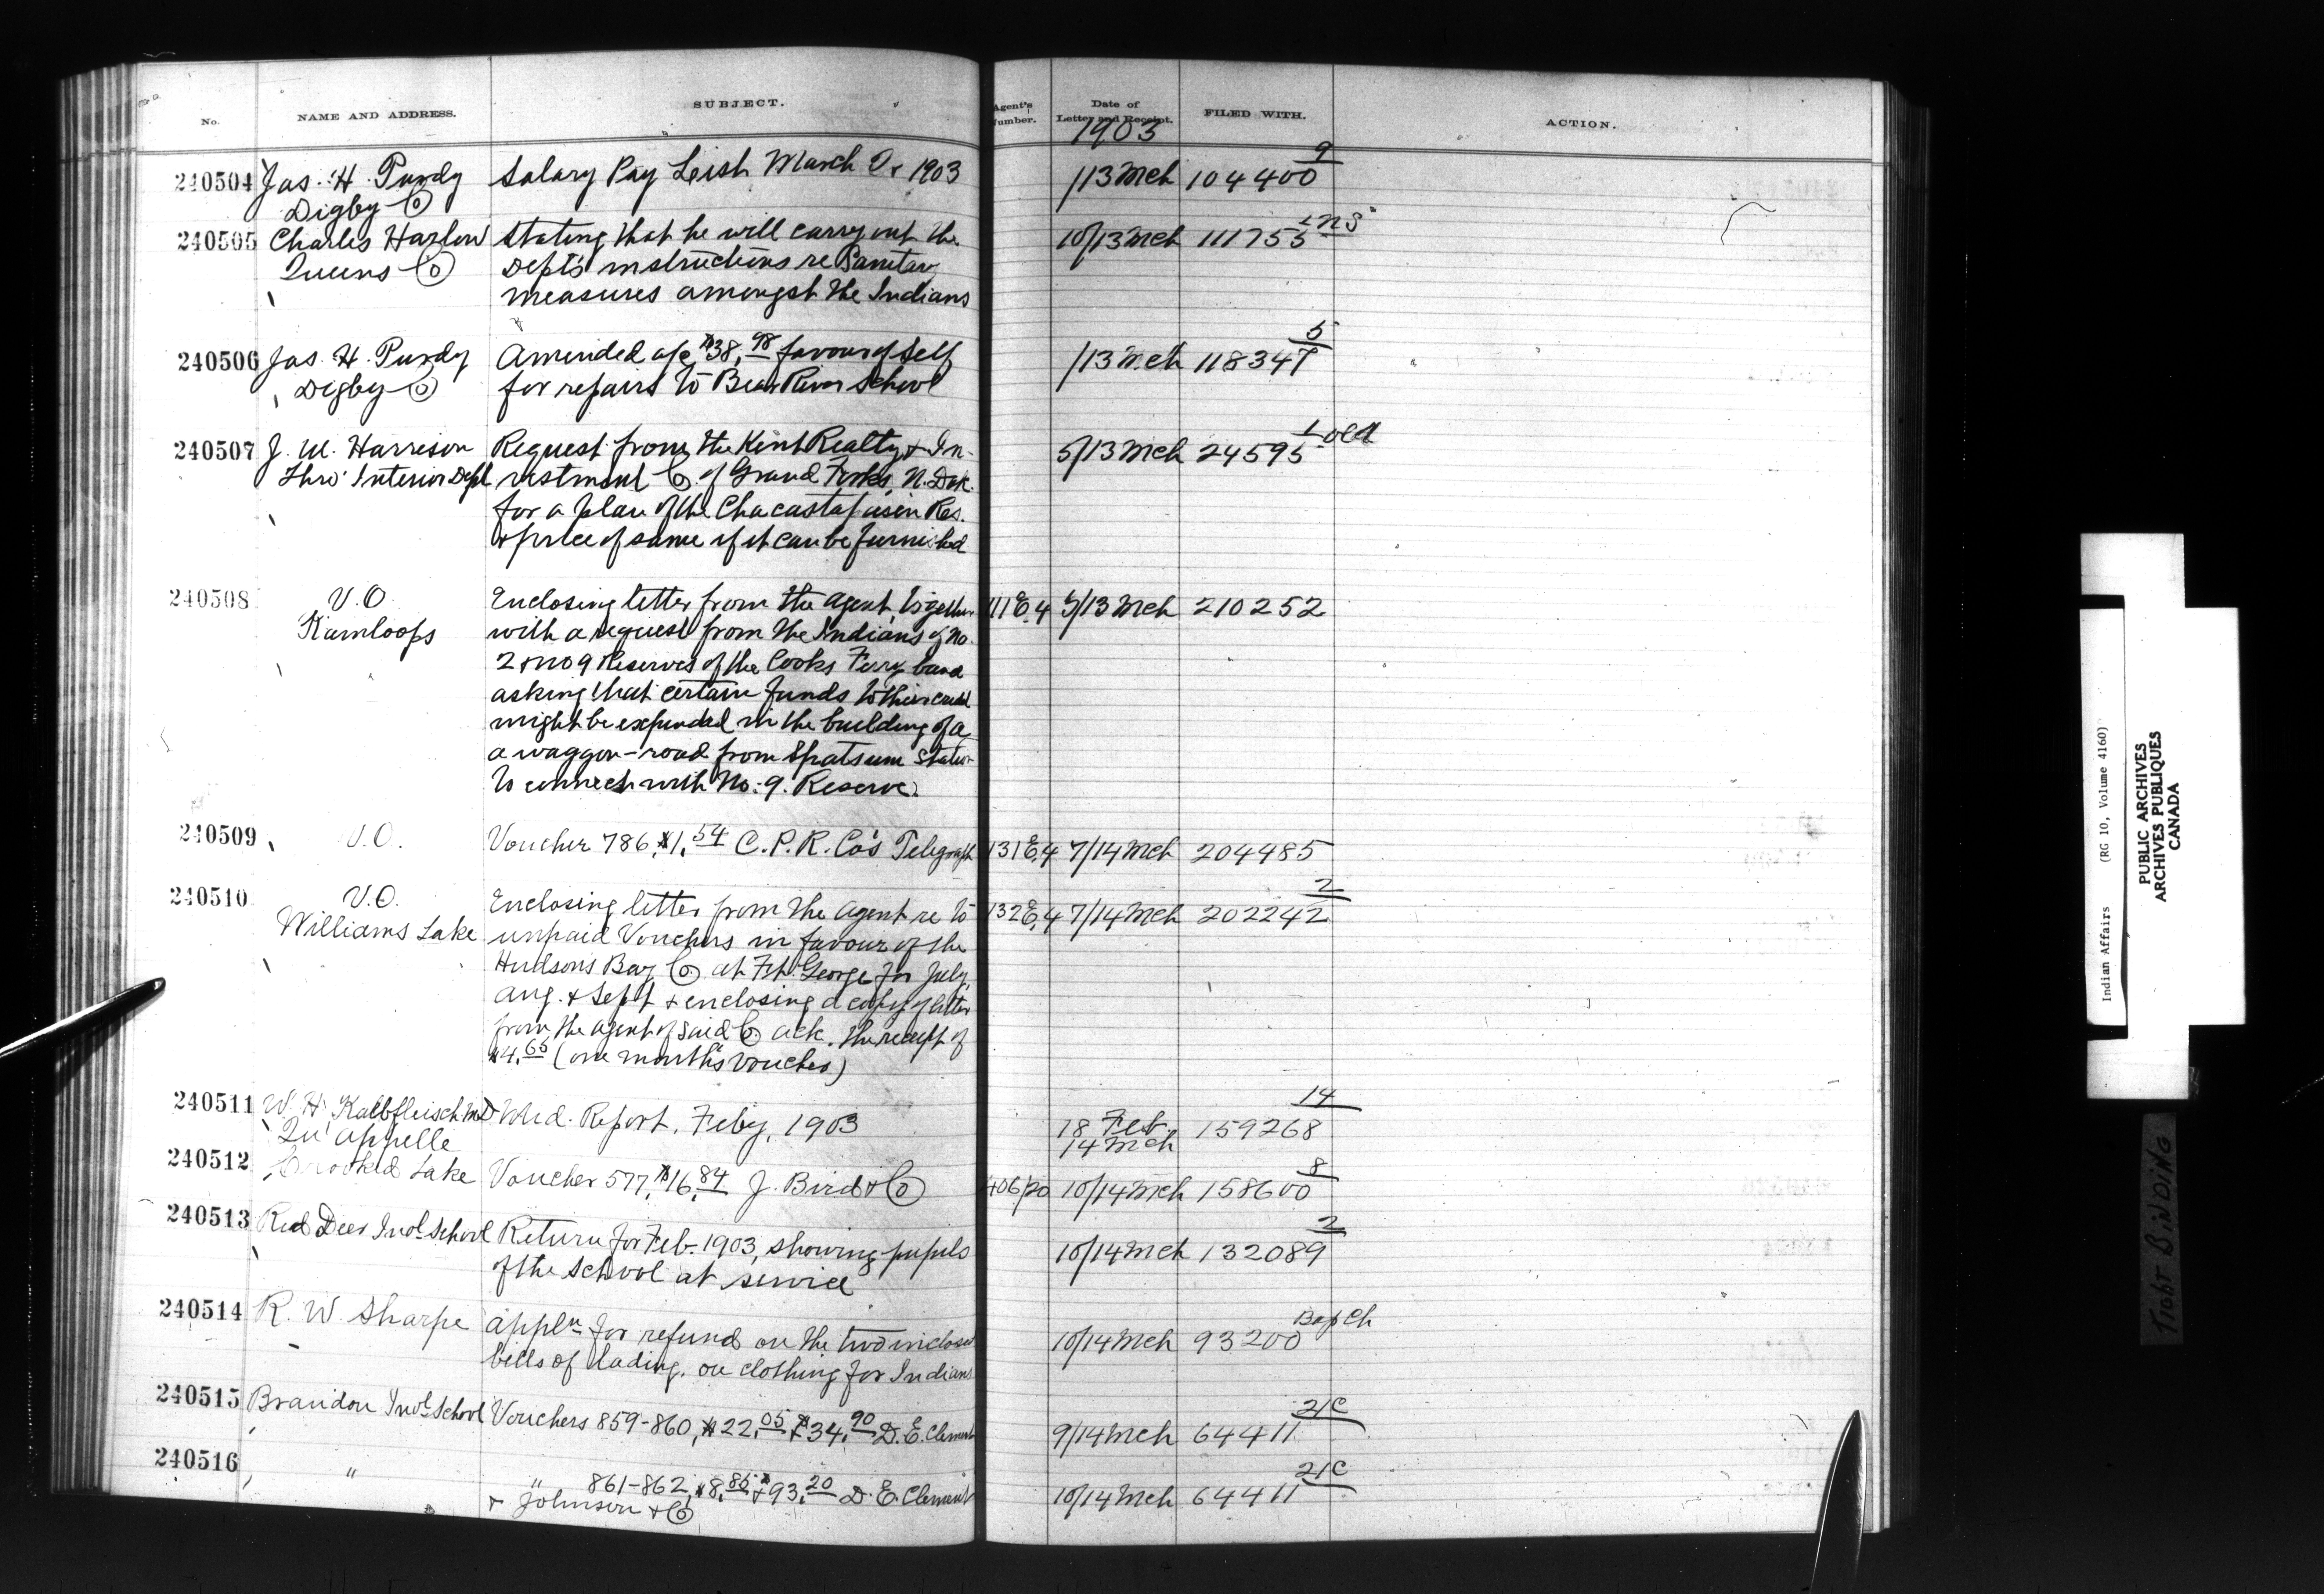 No. NAME AND ADDRESS. SUBJECT. Agent's Number. Date of Letter and Receipt. FILED WITH. ACTION.
1903
240504 Jas. H. Purdy Salary Pay List March Qr 1903 /13 Mch 104400 9
Digby Co
240505 Charles Harlow Stating that he will carry out the 10/13 Mch 111755 1 NS
Queens Co Dept's instructions re Sanitary
measures amongst the Indians
240506 Jas. H. Purdy Amended a/c $38.98 favour of self /13 Mch 118347 5
Digby Co for repairs to Bear River School
240507 J. W. Harrison Request from the Kint Realty & In- 5/13 Mch 24595 1 old
Thro' Interior Dept vestment Co. of Grand Forks, N. Dak.
for a plan of the Chacastapasin Res.
& price of same if it can be furnished
240508 V.O. Enclosing letter from the Agent together 111 E.4 5/13 Mch 210252
Kamloops with a request from the Indians of No.
2 & No 9 Reserves of the Cooks Ferry band
asking that certain funds to their credit
might be expended in the building of a
a waggon-road from Spatsum Station
to connect with No. 9. Reserve.
240509 V.O. Voucher 786, $1.54 C.P.R. Co's Telegraph 131 E.4 7/14 Mch 204485
240510 V.O. Enclosing letter from the Agent re to 132 E.4 7/14 Mch 202242 2
Williams Lake unpaid Vouchers in favour of the
Hudsons Bay Co at Fort George for July,
Aug. & Sept & enclosing a copy of letter
from the agent of said Co ack. the receipt of
$4.65 (one month's voucher)
240511 W. H. Kalbfleisch M.D. Med. Report, Feby, 1903 18 Feb. 14 Mch 159268 14
Qu'Appelle
240512 Crooked Lake Voucher 577, $16.84 J. Bird & Co 406/20 10/14 Mch 158600 8
240513 Red Deer Indl School Return for Feb. 1903, showing pupils 10/14 Mch 132089 2
of the School at service
240514 R. W. Sharpe Appln for refund on the two inclosed 10/14 Mch 93200
bills of lading, on clothing for Indians
240515 Brandon Indl School Vouchers 859-860, $22.05 & $34.90 D. E. Clement 9/14 Mch 64411 21C
240516 " " 861-862, $8.85 & $93.20 D. E. Clement 10/14 Mch 64411 21C
& Johnson & Co
Indian Affairs (RG 10, Volume 4160)
PUBLIC ARCHIVES
ARCHIVES PUBLIQUES
CANADA
TIGHT BINDING